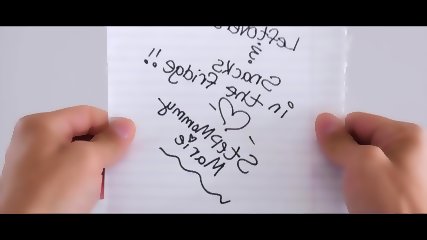 Leftovers
&
Snacks
in the fridge!!
-♡-
StepMommy
Marie